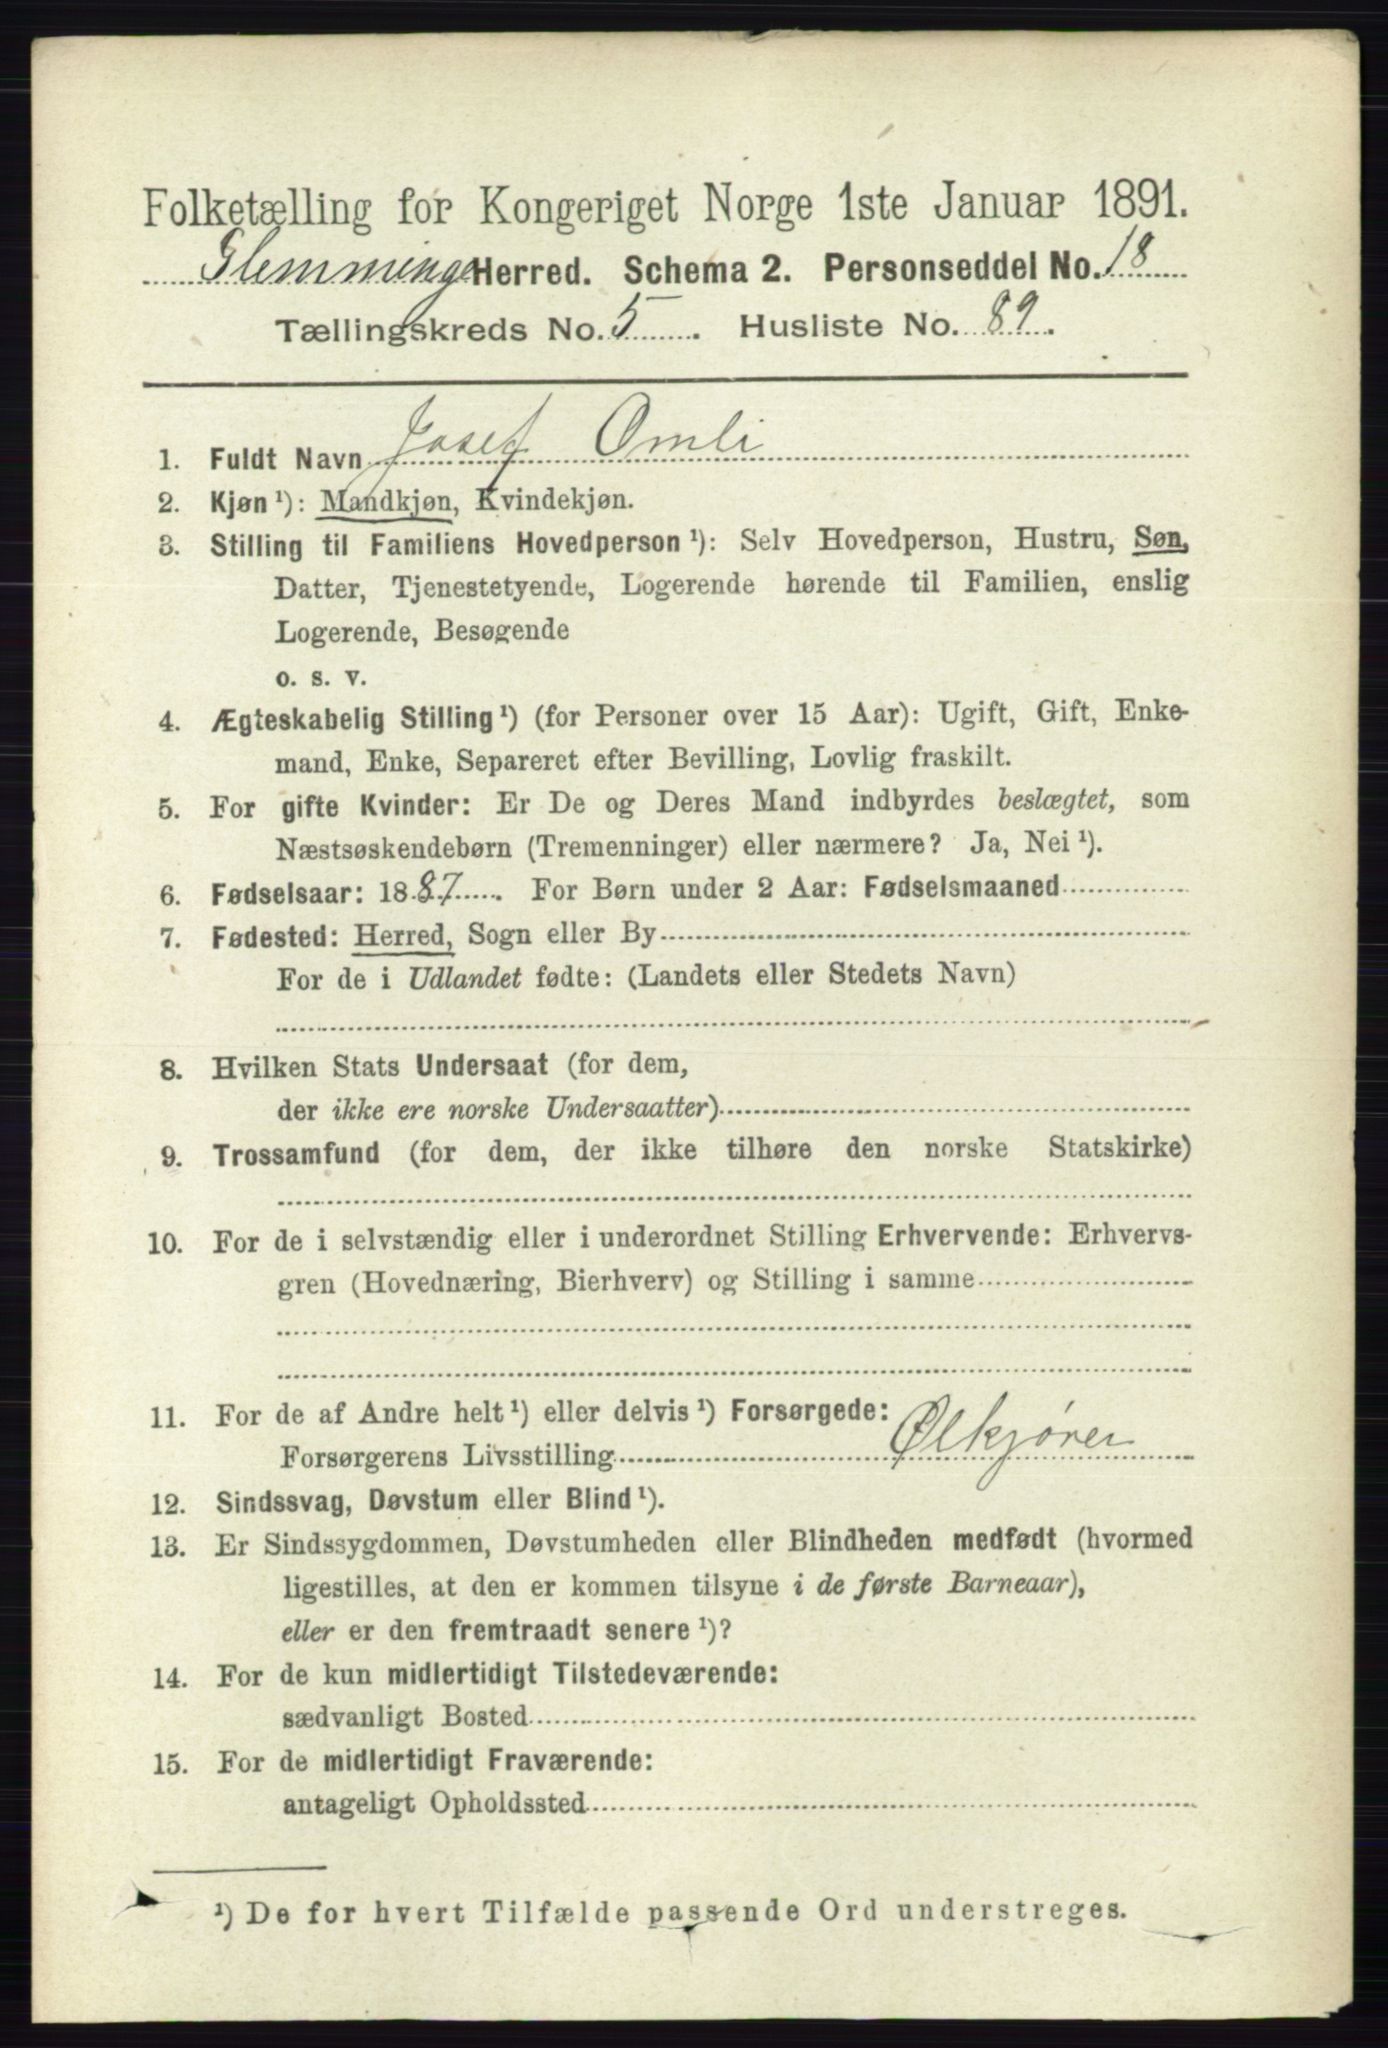 Folketælling for Kongeriget Norge 1ste Januar 1891.
Glemminge Herred. Schema 2. Personseddel No. 18
Tællingskreds No. 5. Husliste No. 89.
1. Fuldt Navn Josef Omli
2. Kjøn ¹): Mandkjøn, Kvindekjøn.
3. Stilling til Familiens Hovedperson ¹): Selv Hovedperson, Hustru, Søn,
Datter, Tjenestetyende, Logerende hørende til Familien, enslig
Logerende, Besøgende
o. s. v.
4. Ægteskabelig Stilling ¹) (for Personer over 15 Aar): Ugift, Gift, Enke-
mand, Enke, Separeret efter Bevilling, Lovlig fraskilt.
5. For gifte Kvinder: Er De og Deres Mand indbyrdes beslægtet, som
Næstsøskendebørn (Tremenninger) eller nærmere? Ja, Nei ¹).
6. Fødselsaar: 1887. For Børn under 2 Aar: Fødselsmaaned
7. Fødested: Herred, Sogn eller By
For de i Udlandet fødte: (Landets eller Stedets Navn)
8. Hvilken Stats Undersaat (for dem,
der ikke ere norske Undersaatter)
9. Trossamfund (for dem, der ikke tilhøre den norske Statskirke)
10. For de i selvstændig eller i underordnet Stilling Erhvervende: Erhvervs-
gren (Hovednæring, Bierhverv) og Stilling i samme
11. For de af Andre helt ¹) eller delvis ¹) Forsørgede:
Forsørgerens Livsstilling Ølkjører
12. Sindssvag, Døvstum eller Blind ¹).
13. Er Sindssygdommen, Døvstumheden eller Blindheden medfødt (hvormed
ligestilles, at den er kommen tilsyne i de første Barneaar),
eller er den fremtraadt senere ¹)?
14. For de kun midlertidigt Tilstedeværende:
sædvanligt Bosted
15. For de midlertidigt Fraværende:
antageligt Opholdssted
¹) De for hvert Tilfælde passende Ord understreges.